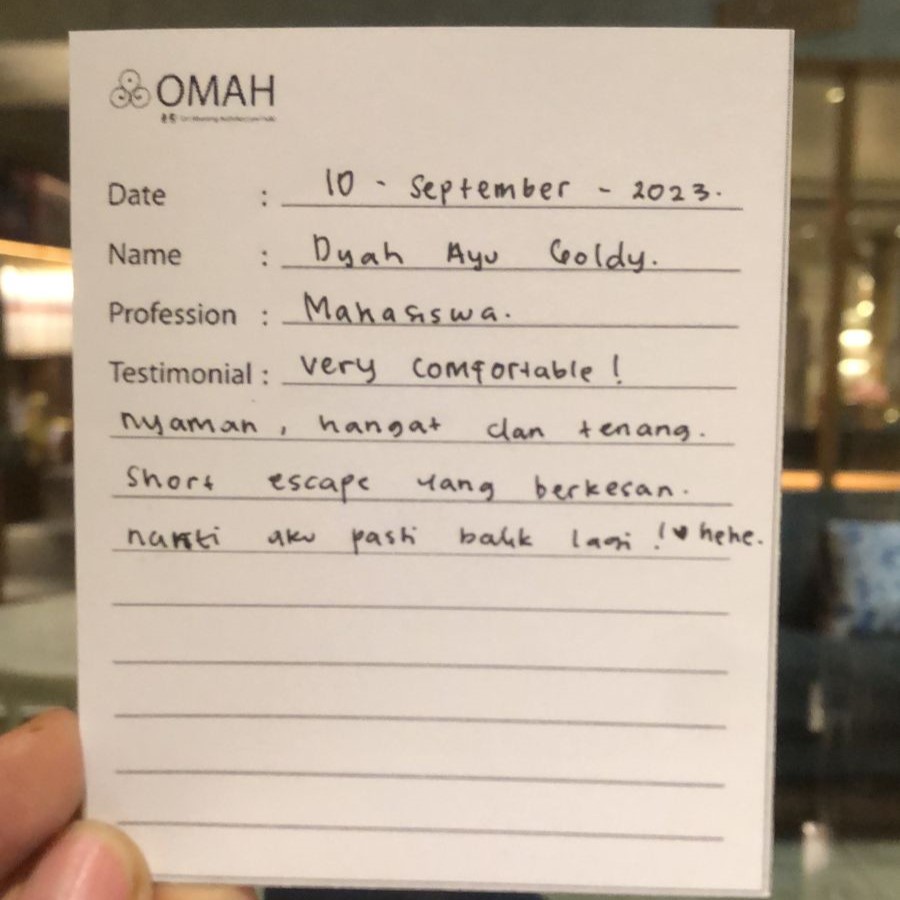 OMAH
Date : 10 - September - 2023.
Name : Dyah Ayu Goldy.
Profession : Mahasiswa.
Testimonial : very comfortable!
nyaman, hangat dan tenang.
Short escape yang berkesan.
nanti aku pasti balik lagi !♥ hehe.